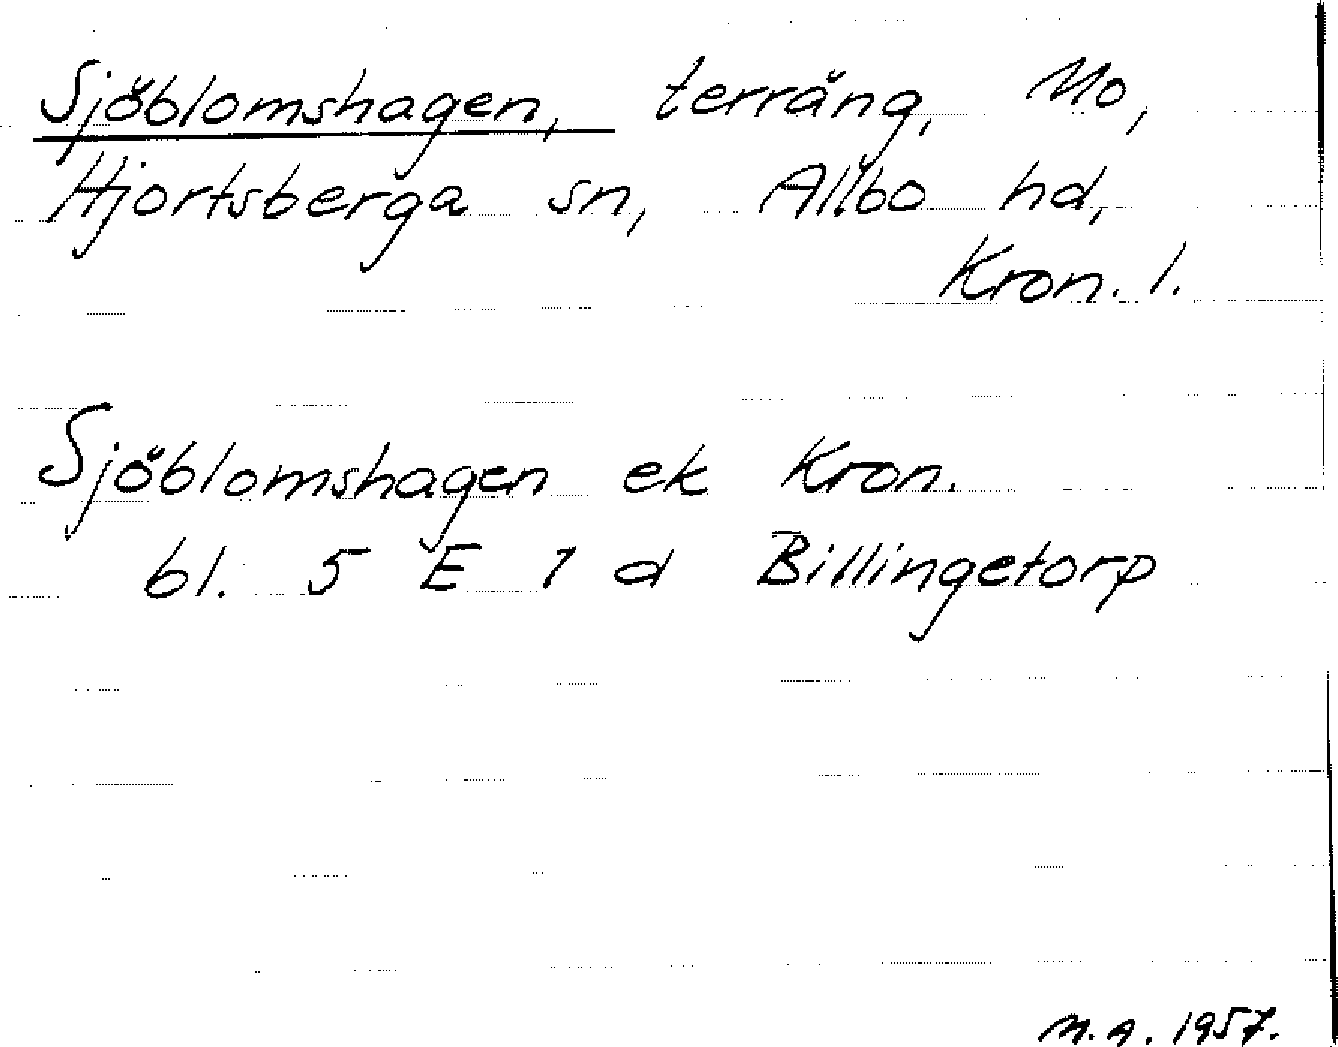 Sjöblomshagen, terräng, Mo,
Hjortsberga sn, Allbo hd,
Kron. l.
Sjöblomshagen ek Kron.
bl. 5 E 1 d Billingetorp
M.A. 1957.